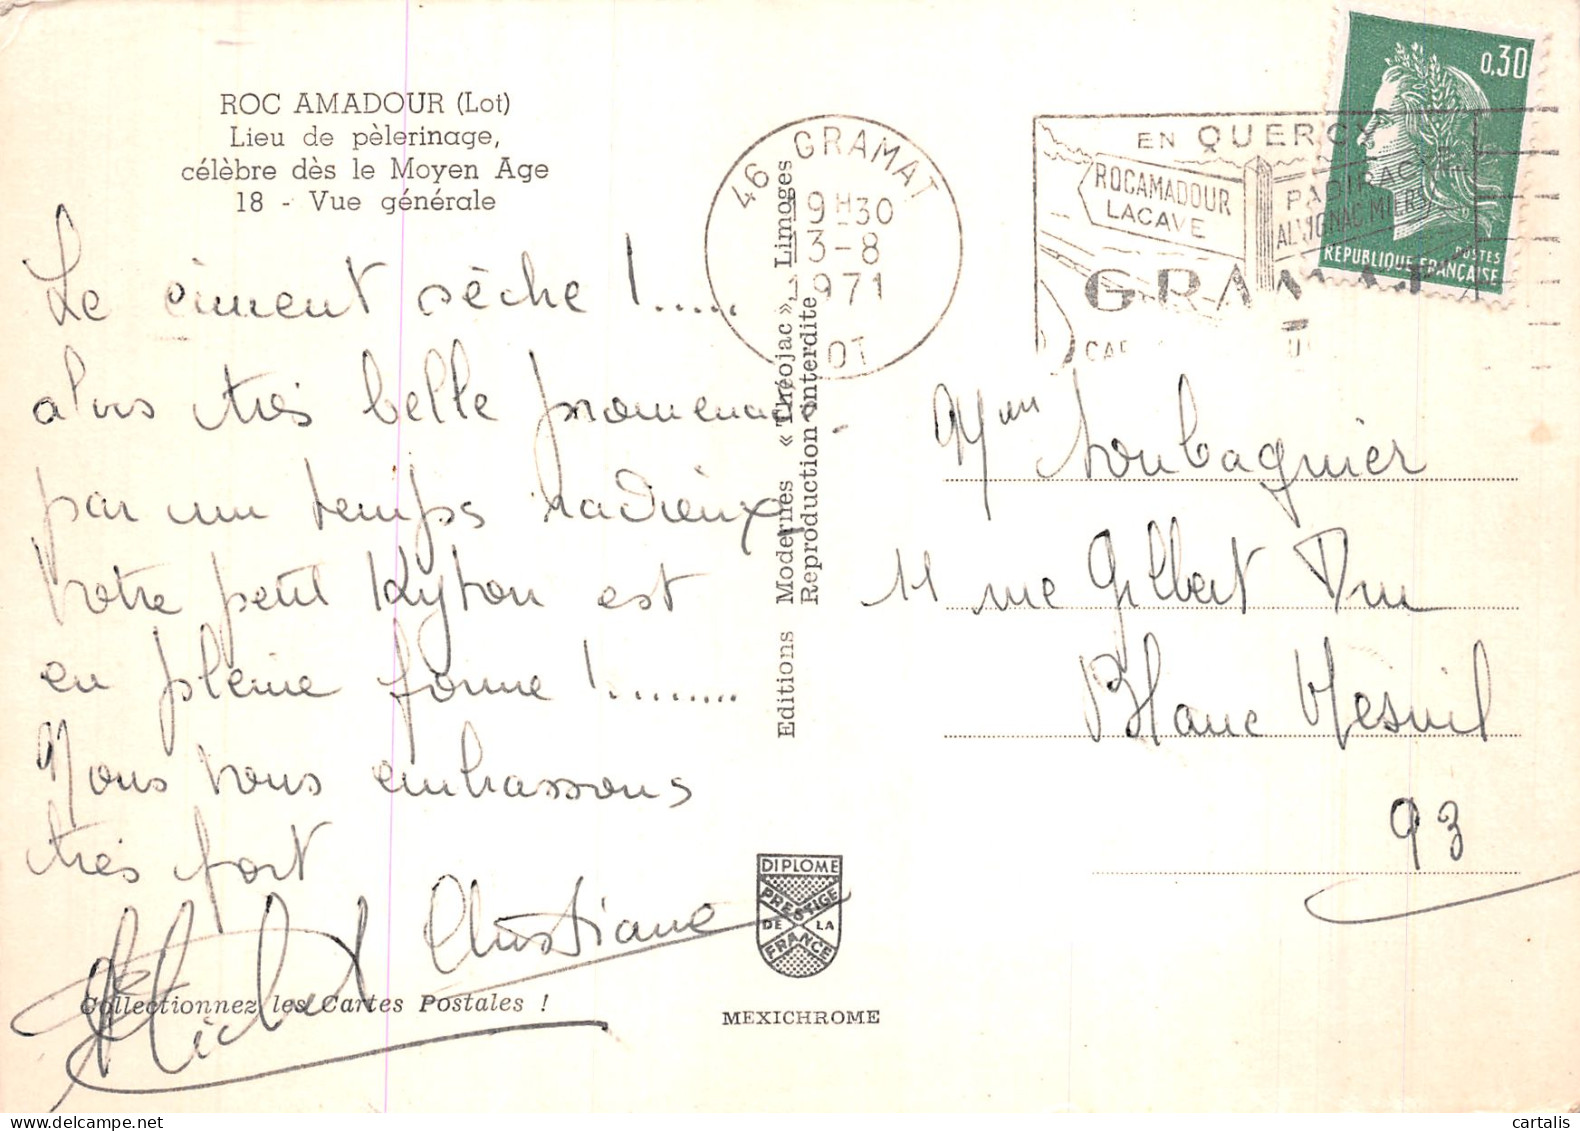 ROC AMADOUR (Lot)
Lieu de pèlerinage,
célèbre dès le Moyen Age
18 - Vue générale
Le ciment sèche !.....
alors très belle promenade
par un temps radieux
Votre petit Kyton est
en pleine forme !.........
Nous vous embrassons
très fort
Michel Christiane
Collectionnez les Cartes Postales !
Editions Modernes « Théojac », Limoges
Reproduction interdite
46 GRAMAT
9H30
3-8
971
OT
EN QUERCY
ROCAMADOUR
LACAVE
PADIRAC
ALVIGNAC MIERS
GRAMAT
0,30
POSTES
REPUBLIQUE FRANÇAISE
Mme Loubagnier
11 rue Gilbert Dru
Blanc Mesnil
93
DIPLOME
PRESTIGE
DE LA
FRANCE
MEXICHROME
cartalis